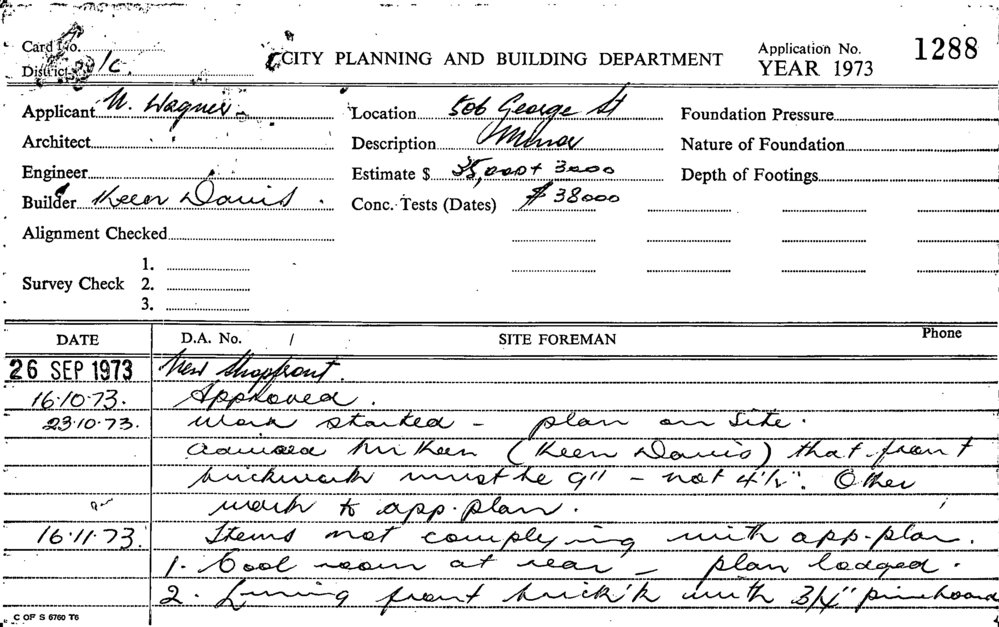 Card No.
District c.
CITY PLANNING AND BUILDING DEPARTMENT
Application No. 1288
YEAR 1973
Applicant Wagner
Location 506 George St
Foundation Pressure
Architect
Description Minor
Nature of Foundation
Engineer
Estimate $ 35,000 + 3000
Depth of Footings
Builder Keen Davis
Conc. Tests (Dates) $38000
Alignment Checked
Survey Check 1.
2.
3.
DATE D.A. No. / SITE FOREMAN Phone
26 SEP 1973 New Shopfront.
16.10.73. Approved.
23.10.73. Work started - plan on site.
advised Mr Keen (Keen Davis) that front
brickwork must be 9" - not 4½". Other
work to app. plan.
16.11.73. Items not complying with app. plan.
1. Cool room at rear - plan lodged.
2. Lining front brick'k with 3/4" pineboard
C OF S 6760 T6